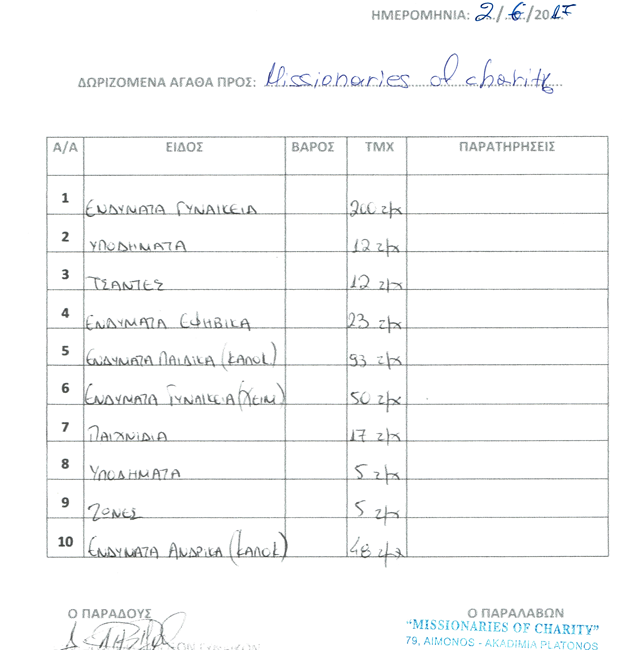 ΗΜΕΡΟΜΗΝΙΑ: 2./.6/2017
ΔΩΡΙΖΟΜΕΝΑ ΑΓΑΘΑ ΠΡΟΣ: Missionaries of charity
Α/Α ΕΙΔΟΣ ΒΑΡΟΣ ΤΜΧ ΠΑΡΑΤΗΡΗΣΕΙΣ
1 ΕΝΔΥΜΑΤΑ ΓΥΝΑΙΚΕΙΑ 200 τμχ
2 ΥΠΟΔΗΜΑΤΑ 12 τμχ
3 ΤΣΑΝΤΕΣ 12 τμχ
4 ΕΝΔΥΜΑΤΑ ΕΦΗΒΙΚΑ 23 τμχ
5 ΕΝΔΥΜΑΤΑ ΠΑΙΔΙΚΑ (ΚΑΛΟΚ) 93 τμχ
6 ΕΝΔΥΜΑΤΑ ΓΥΝΑΙΚΕΙΑ (ΧΕΙΜ) 50 τμχ
7 ΠΑΙΧΝΙΔΙΑ 17 τμχ
8 ΥΠΟΔΗΜΑΤΑ 5 τμχ
9 ΖΩΝΕΣ 5 τμχ
10 ΕΝΔΥΜΑΤΑ ΑΝΔΡΙΚΑ (ΚΑΛΟΚ) 48 τμχ
Ο ΠΑΡΑΔΟΥΣ Ο ΠΑΡΑΛΑΒΩΝ
"MISSIONARIES OF CHARITY"
79, AIMONOS - AKADIMIA PLATONOS